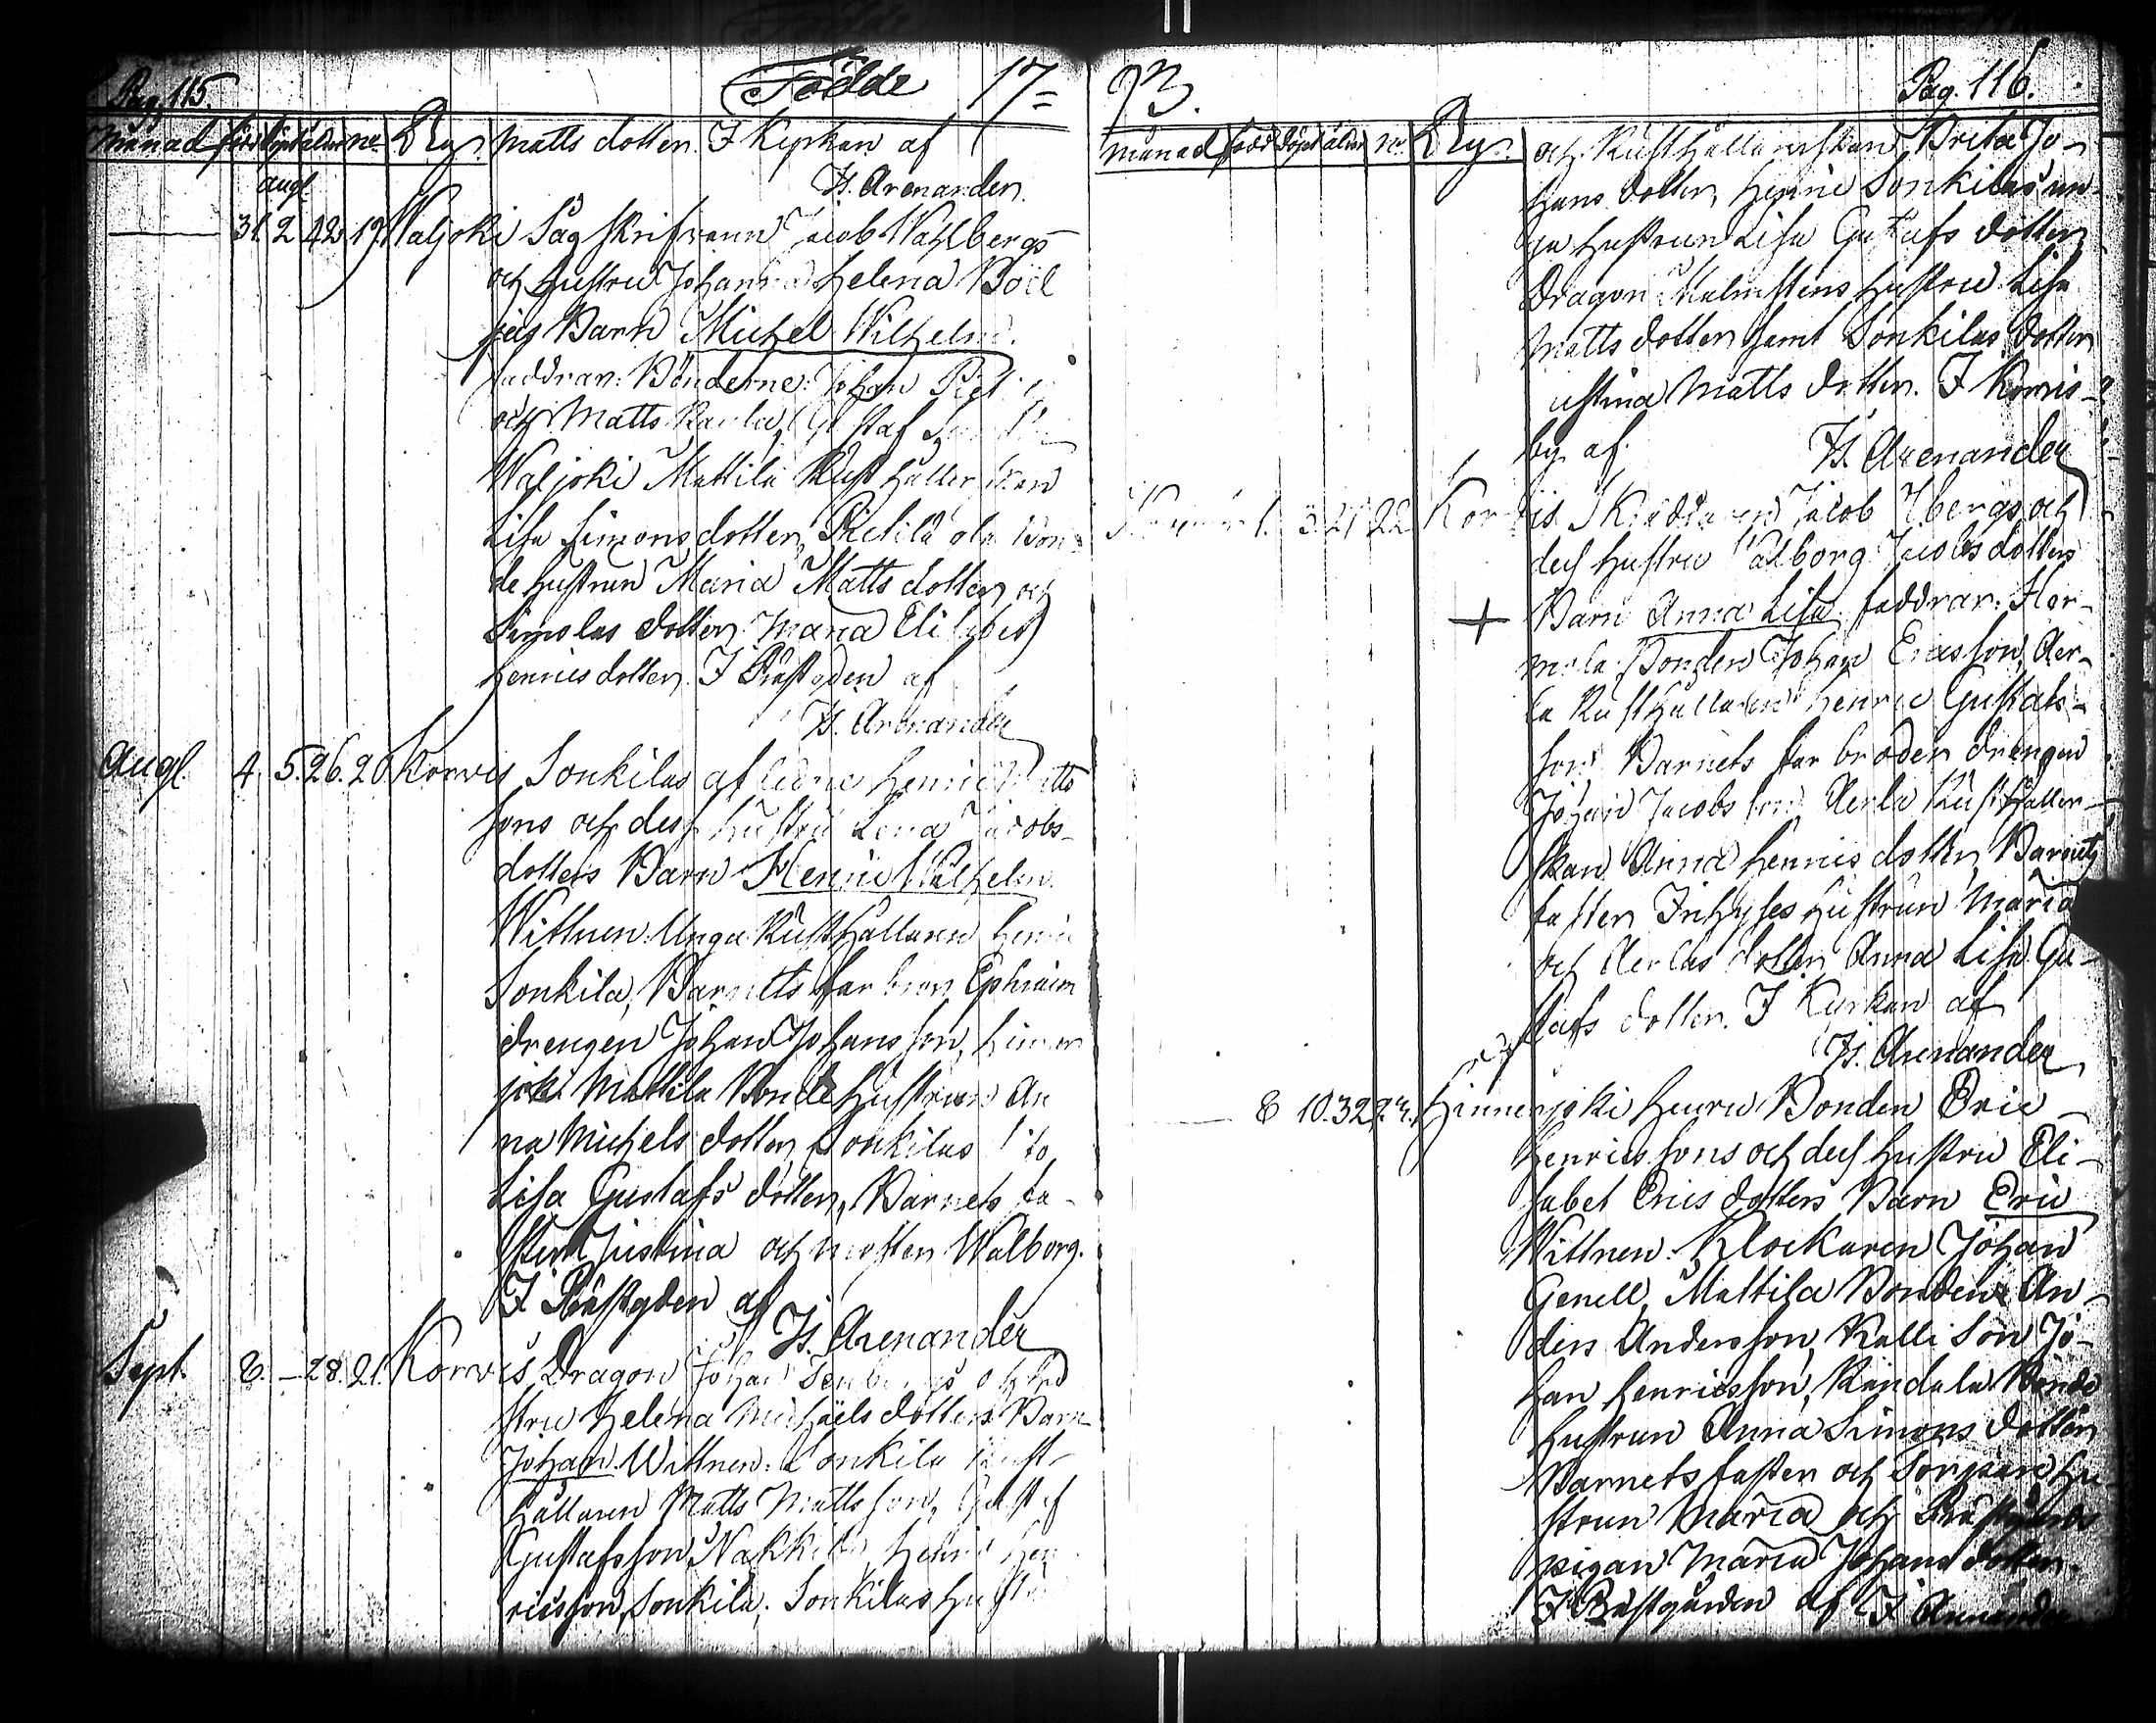 Pag. 115. Födde 17=
Månad född döpt ålder no. By. Matts dotter. I Kyrkan af
Is. Arenander.
augl.
31. 2 42 19. Waljoki Såg skrifvaren Jacob Wahlbergs
och hustru Johanna Helena Boel
jas Barn Michel Wilhelm.
faddrar: Bönderne: Johan
och Matts Gustaf
Waljoki Mattila Rusthållerskan
Lisa Simonsdotter, Pietilä
de hustrun Maria Matts dotter och
Simolas dotter Maria Elisabet
Henricsdotter. I Prästgden af
Is. Arenander
Augl. 4. 5. 26. 20 Korvis Sonkilas Henric Matts
sons och dess hustru Lena Jacobs-
dotters Barn Henric Wilhelm.
Wittnen: Unga Rusthållaren Henric
Sonkila, Barnets farbror Ephraim
drengen Johan Johansson, Hinner
joki Mattila Bondehustrun An
na Michels dotter, Sonkilas
Lisa Gustafs dotter, Barnets fa-
ster Justina och moster Walborg.
I Prästgden af
Is. Arenander
Sept. 8. – 28. 21. Korvis Dragon Johan och hu
stru Helena Michaels dotters Barn
Johan. Wittnen: Sonkila Rust-
hållaren Matts Mattsson, Gustaf
Gustafsson Nakkila, Henric Hen
ricsson, Sonkila, Sonkilas hustru
93. Pag. 116.
månad född döpt ålder no. By. och Rusthållerskan Brita Jo-
hans dotter, Henric Sonkilas un-
ga hustrun Lisa Gustafs dotter
Dragon Malmstens hustru Lisa
Matts dotter samt Sonkilas dotter
ustina Matts dotter. I Korvis-
by af Is. Arenander
1. 3. 21 22 Korvis Skräddaren Jacob och
dess hustru Walborg Jacobsdotters
+ Barn Anna Lisa. faddrar: Her-
mola Bonden Johan Ericsson, Aer-
la Rusthållaren Henric Gustafs-
son Barnets far broder drengen
Johan Jacobsson Aerla Rusthåller-
skan Anna Henrics dotter, Barnets
faster Inhyses hustrun Maria
och Aerlas dotter Anna Lisa Gu-
stafs dotter. I Kyrkan af
Is. Arenander
8 10. 32 23. Hinnerjoki Heura Bonden Eric
Henricssons och dess hustru Eli-
sabet Erics dotters Barn Eric
Wittnen: Klockaren Johan
Genell, Mattila Bonden An-
ders Andersson, Kalli Son Jo-
han Henricsson, Kandola Bonde
hustrun Anna Simons dotter
Barnets faster och hu
strun Maria och Prästgårds
pigan Maria Johans dotter.
I Prästgården af I. Arenander